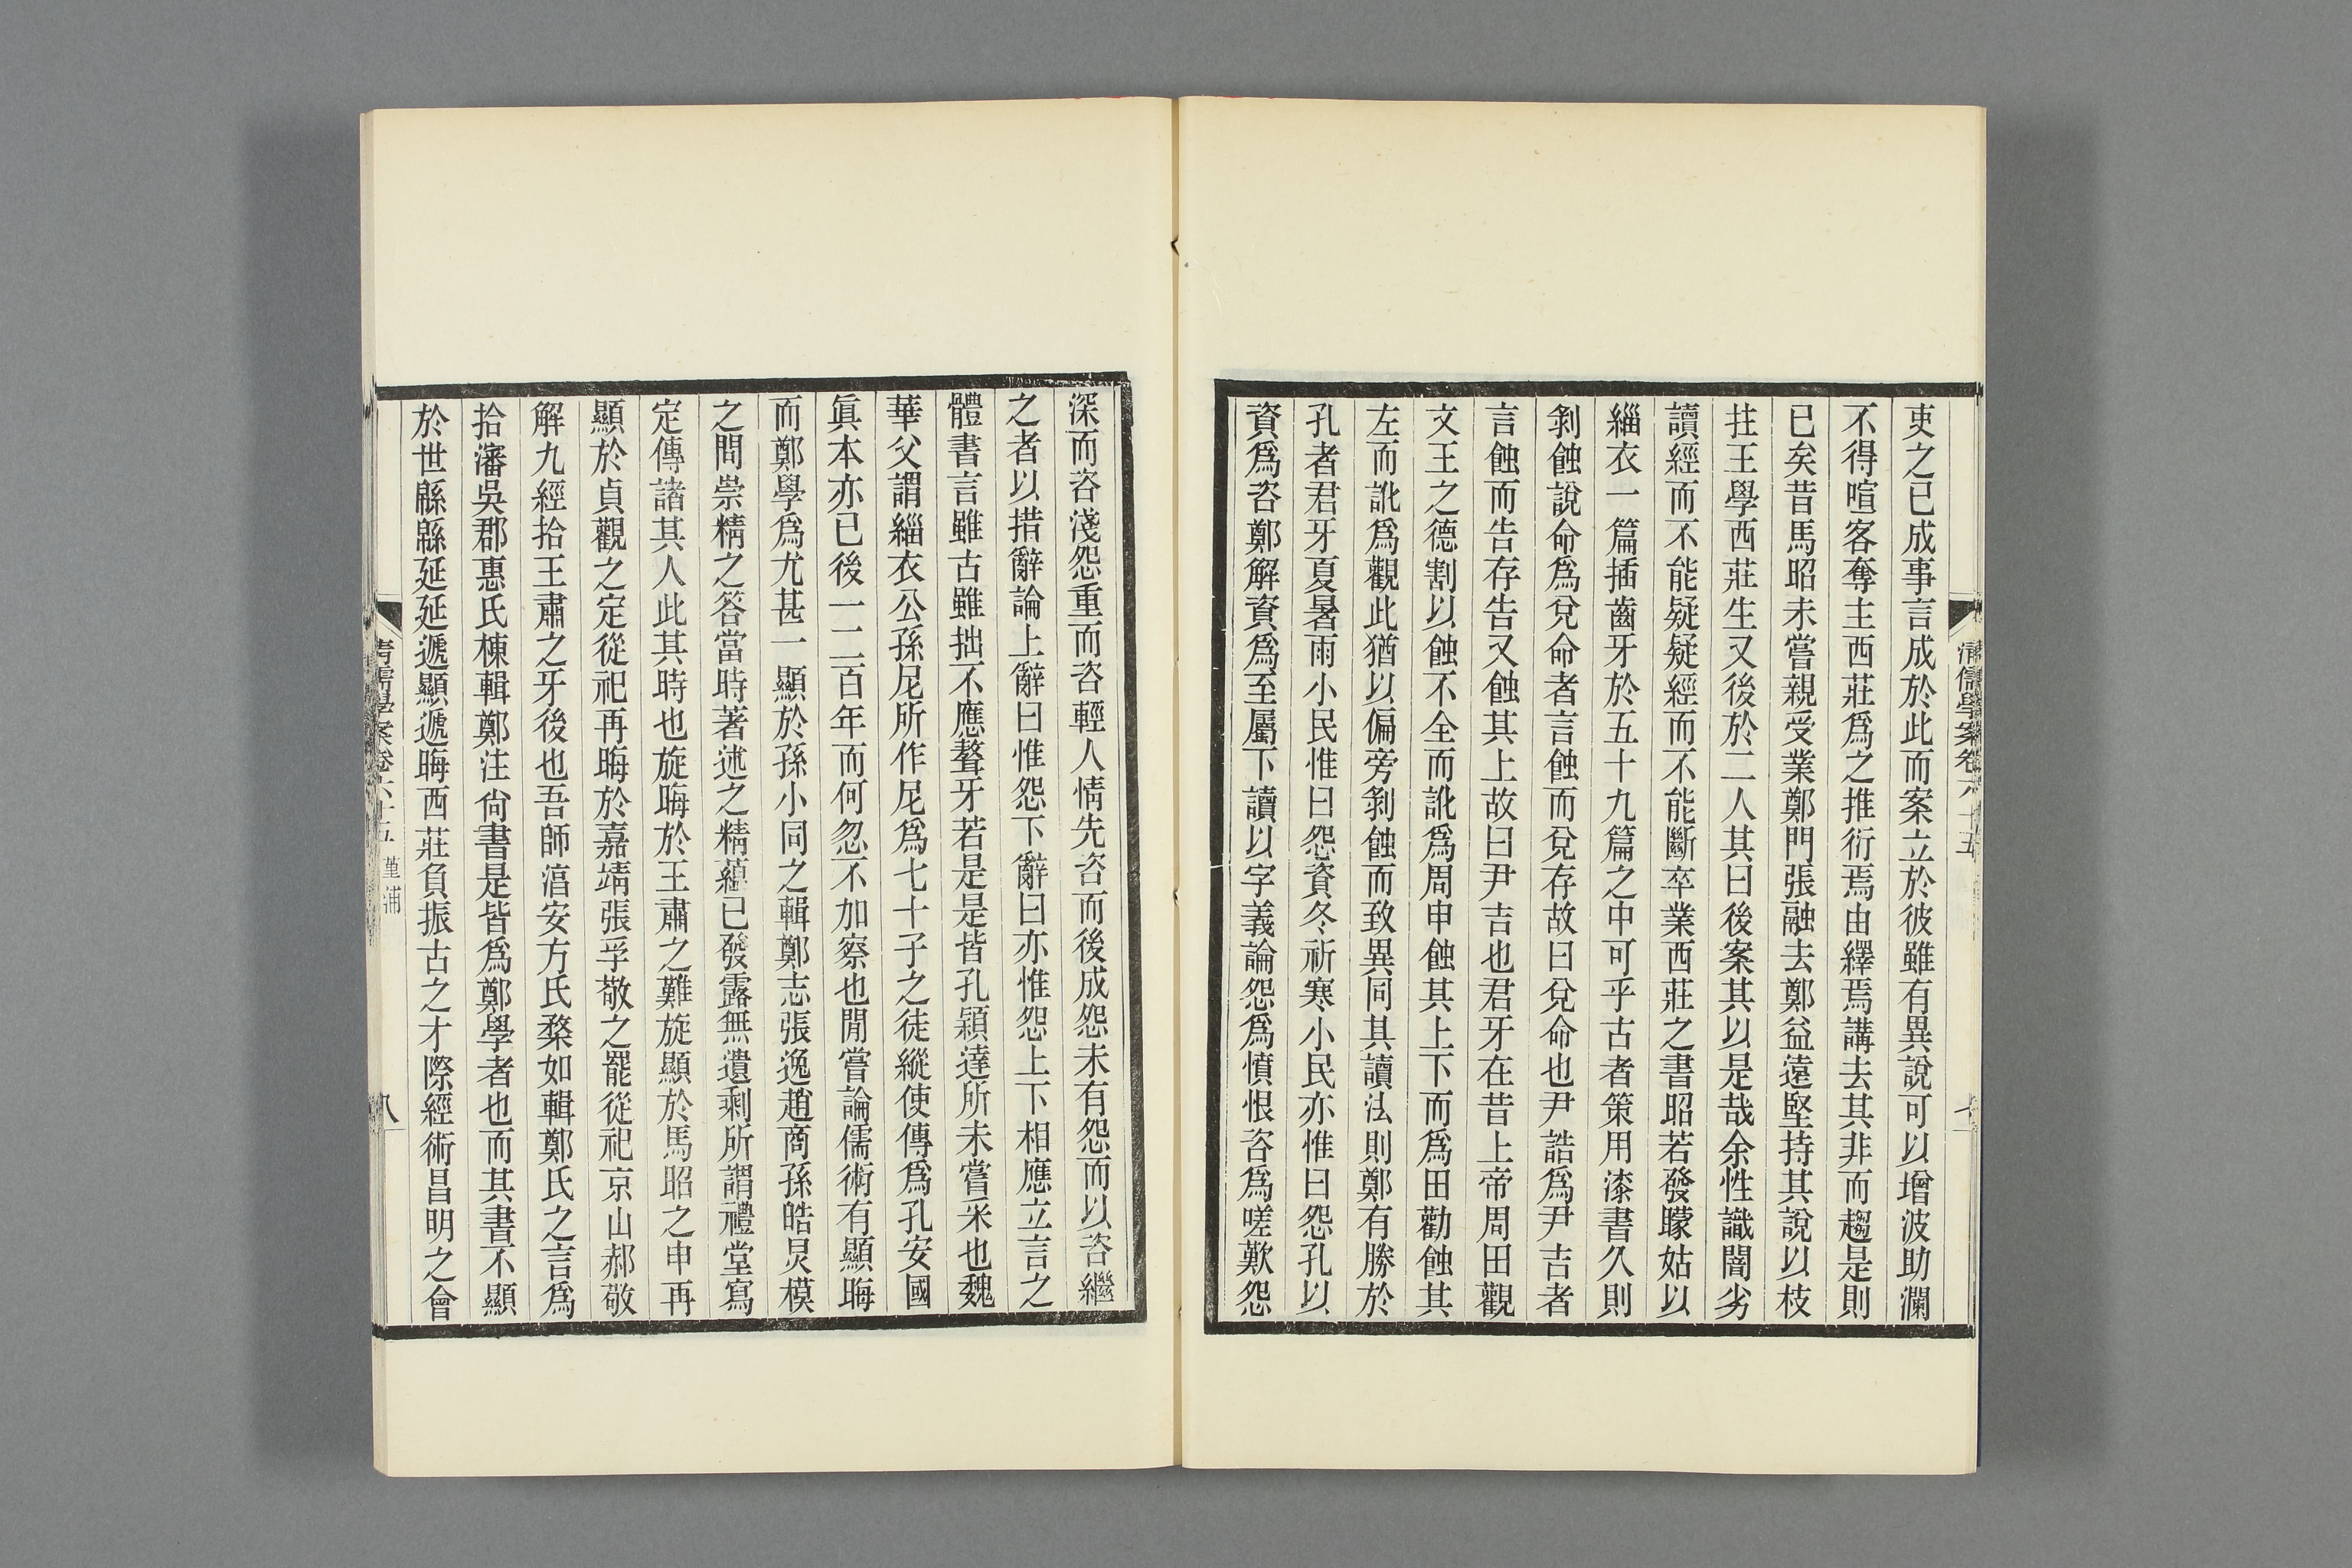 吏之已成事言成於此而案立於彼雖有異說可以增波助瀾
不得喧客奪主西莊爲之推衍焉由繹焉講去其非而趨是則
已矣昔馬昭未嘗親受業鄭門張融去鄭益遠堅持其說以枝
拄王學西莊生又後於二人其曰後案其以是哉余性識闇劣
讀經而不能疑疑經而不能斷卒業西莊之書昭若發矇姑以
緇衣一篇插齒牙於五十九篇之中可乎古者策用漆書久則
剝蝕說命爲兌命者言蝕而兌存故曰兌命也尹誥爲尹吉者
言蝕而告存告又蝕其上故曰尹吉也君牙在昔上帝周田觀
文王之德割以蝕不全而訛爲周申蝕其上下而爲田勸蝕其
左而訛爲觀此猶以偏旁剝蝕而致異同其讀法則鄭有勝於
孔者君牙夏暑雨小民惟曰怨資冬祈寒小民亦惟曰怨孔以
資爲咨鄭解資爲至屬下讀以字義論怨爲憤恨咨爲嗟歎怨
清儒學案卷六十五
深而咨淺怨重而咨輕人情先咨而後成怨未有怨而以咨繼
之者以措辭論上辭曰惟怨下辭曰亦惟怨上下相應立言之
體書言雖古雖拙不應聱牙若是是皆孔穎達所未嘗采也魏
華父謂緇衣公孫尼所作尼爲七十子之徒縱使傳爲孔安國
眞本亦已後一二百年而何忽不加察也閒嘗論儒術有顯晦
而鄭學爲尤甚一顯於孫小同之輯鄭志張逸趙商孫皓炅模
之問崇精之答當時著述之精蘊已發露無遺剩所謂禮堂寫
定傳諸其人此其時也旋晦於王肅之難旋顯於馬昭之申再
顯於貞觀之定從祀再晦於嘉靖張孚敬之罷從祀京山郝敬
解九經拾王肅之牙後也吾師湻安方氏楘如輯鄭氏之言爲
拾瀋吳郡惠氏棟輯鄭注尙書是皆爲鄭學者也而其書不顯
於世緜緜延延遞顯遞晦西莊負振古之才際經術昌明之會
清儒學案卷六十五 堇浦 八